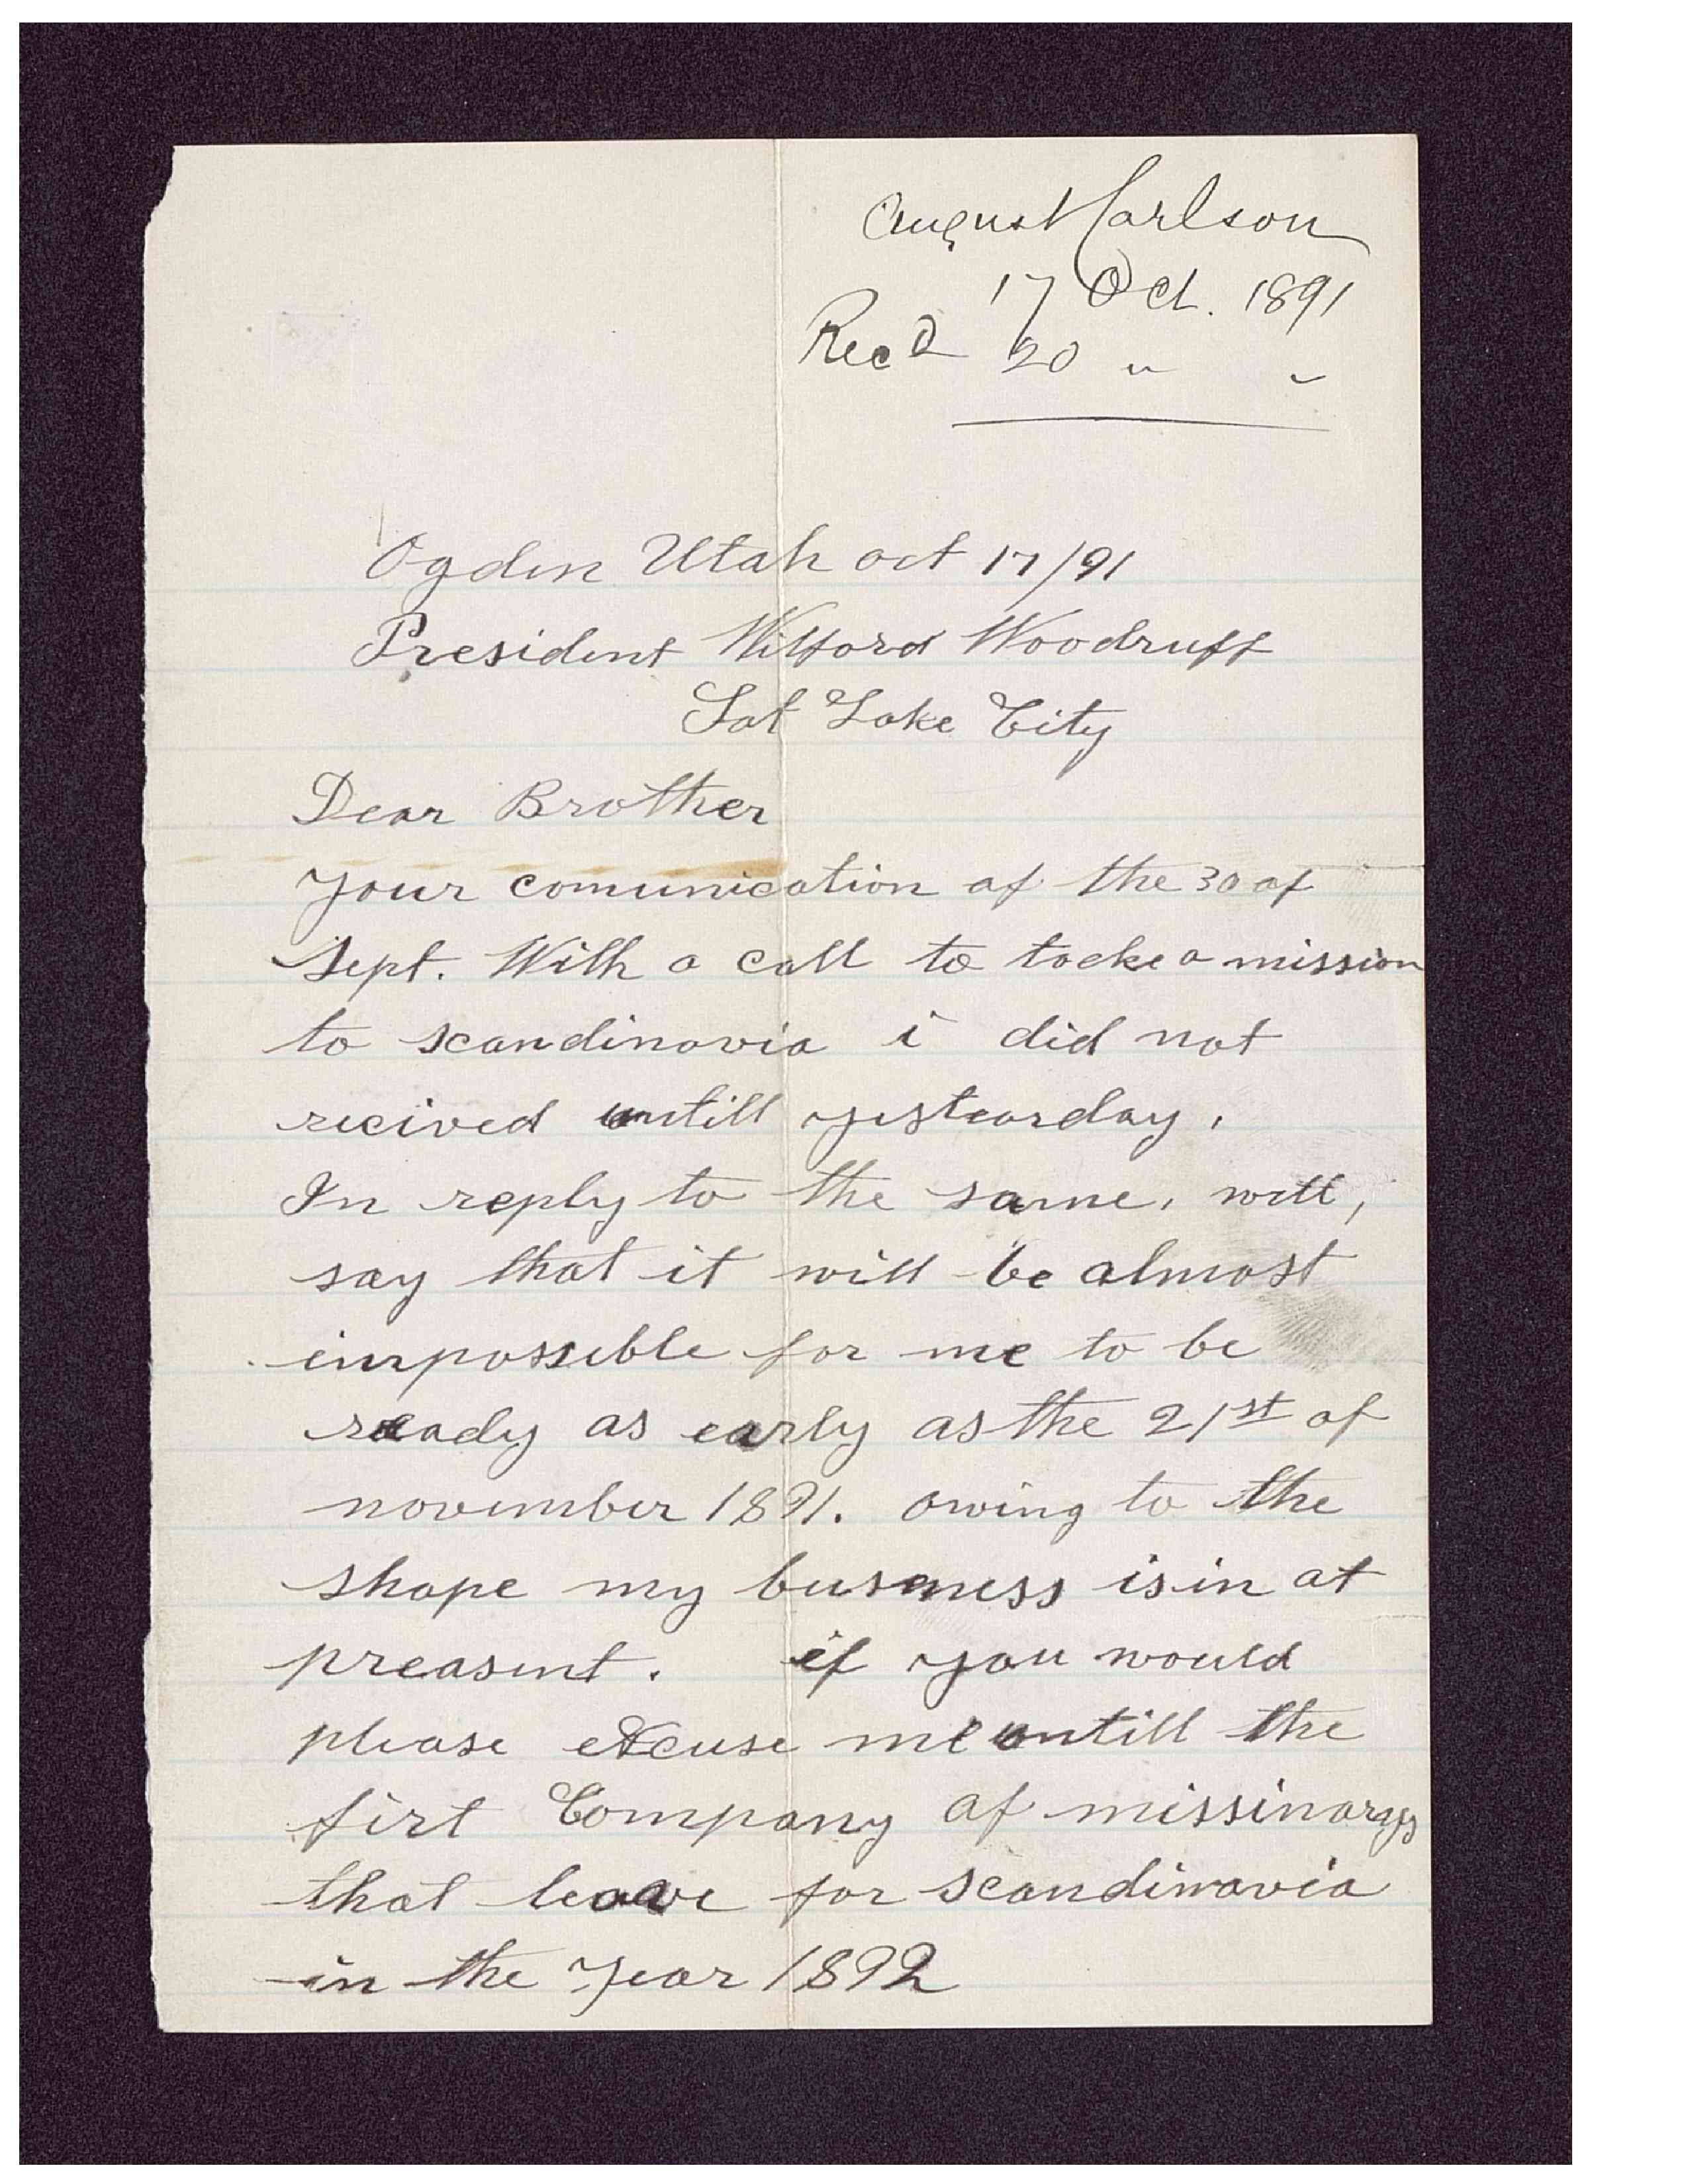 August Carlson
17 Oct. 1891
Recd 20 " "
Ogden Utah oct 17/91
President Wilford Woodruff
Salt Lake City
Dear Brother
Your comunication of the 30 of
Sept. With a call to tacke a mission
to scandinavia i did not
recived untill yestearday.
In reply to the same, will,
say that it will be almost
impossible for me to be
ready as early as the 21st of
november 1891. owing to the
shape my business is in at
preasent. if you would
please excuse me untill the
firt Company of missinarys
that leave for scandinavia
in the Year 1892